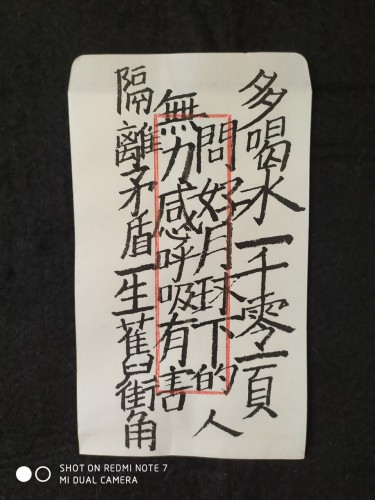 多喝水一千零一頁
問好月球下的人
無力感呼吸有害
隔離矛盾一生舊街角
SHOT ON REDMI NOTE 7
MI DUAL CAMERA